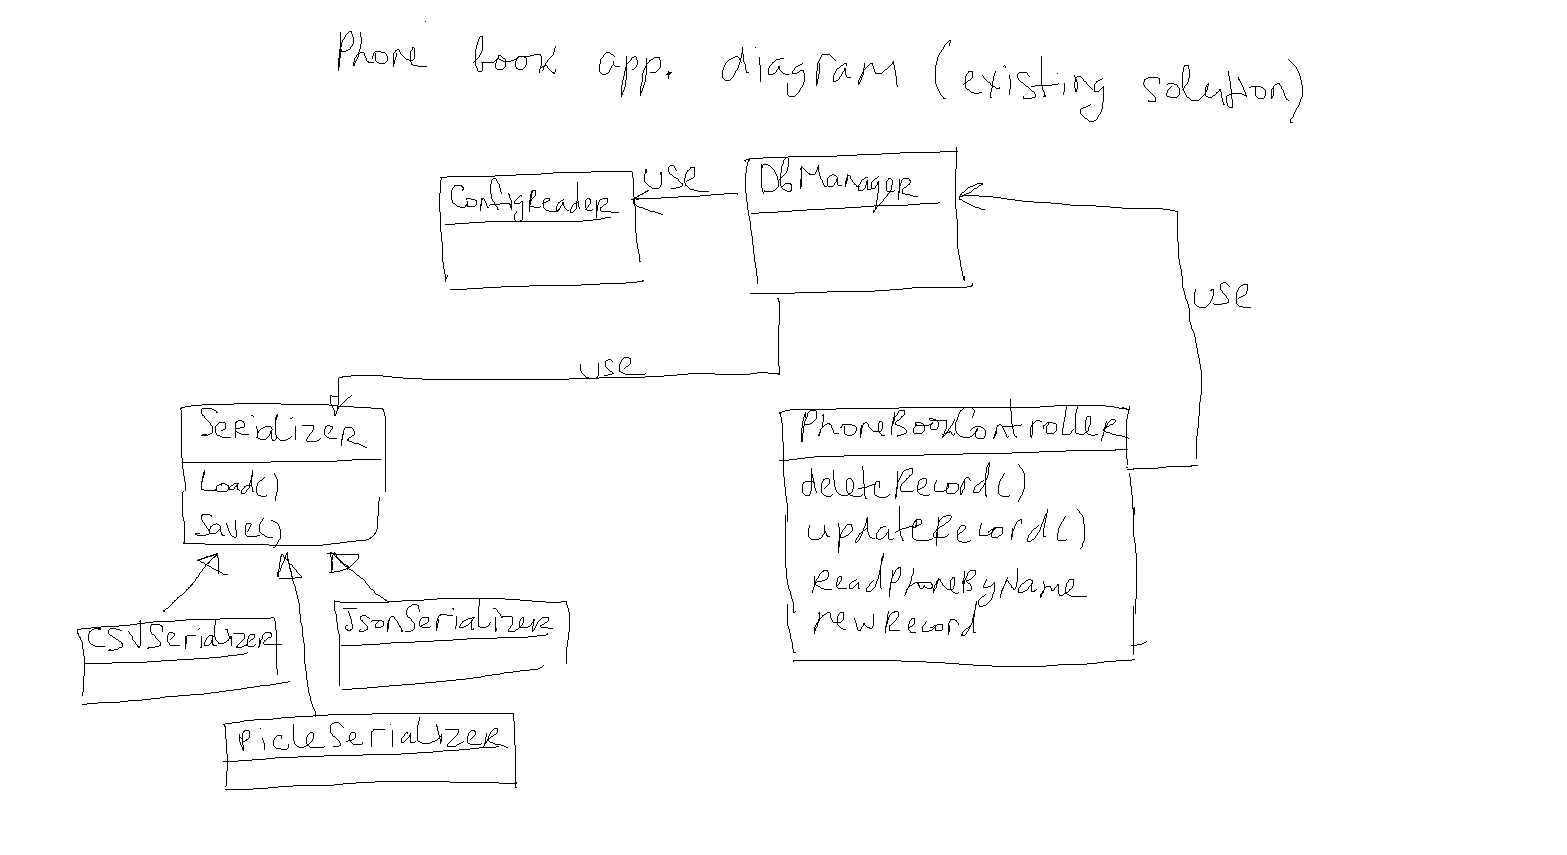 Phone book app. diagram (existing solution)
ConfigReader
use
DbManager
use
use
Serializer
Load()
Save()
PhoneBookController
deleteRecord()
updateRecord()
ReadPhoneByName
newRecord
CSVSerializer
JsonSerializer
PicleSerializer